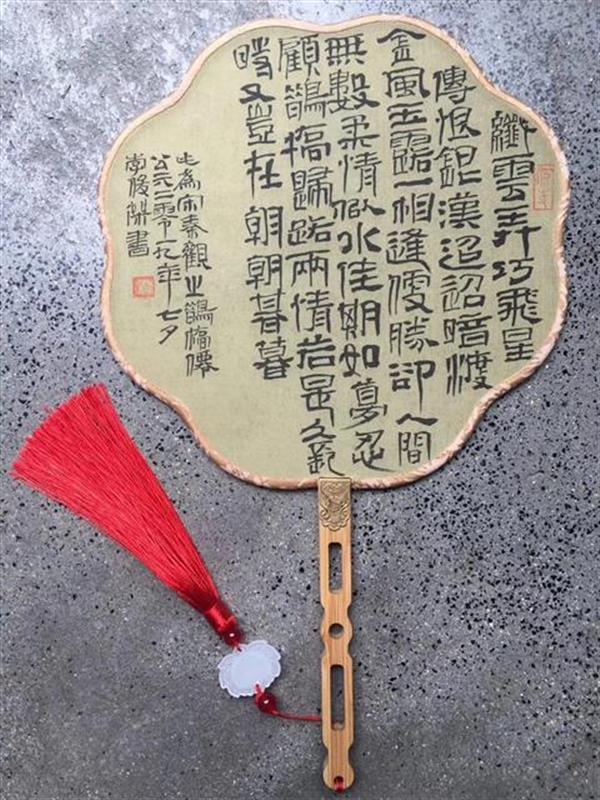 纖雲弄巧飛星
傳恨銀漢迢迢暗渡
金風玉露一相逢便勝卻人間
無數柔情似水佳期如夢忍
顧鵲橋歸路兩情若是久長
時又豈在朝朝暮暮
此為宋秦觀之鵲橋僊
公元二零一九年七夕
書